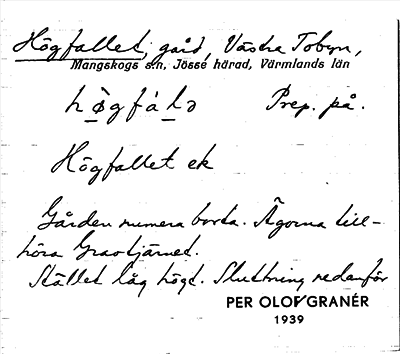 Högfallet, gård, Västra Tobyn,
Mangskogs s:n, Jösse härad, Värmlands län
hö̀gfálə Prep. på.
Högfallet ek
Gården numera borta. Ägorna till-
höra Gravtjärnet.
Stället låg högt. Sluttning nedanför
PER OLOF GRANÉR
1939